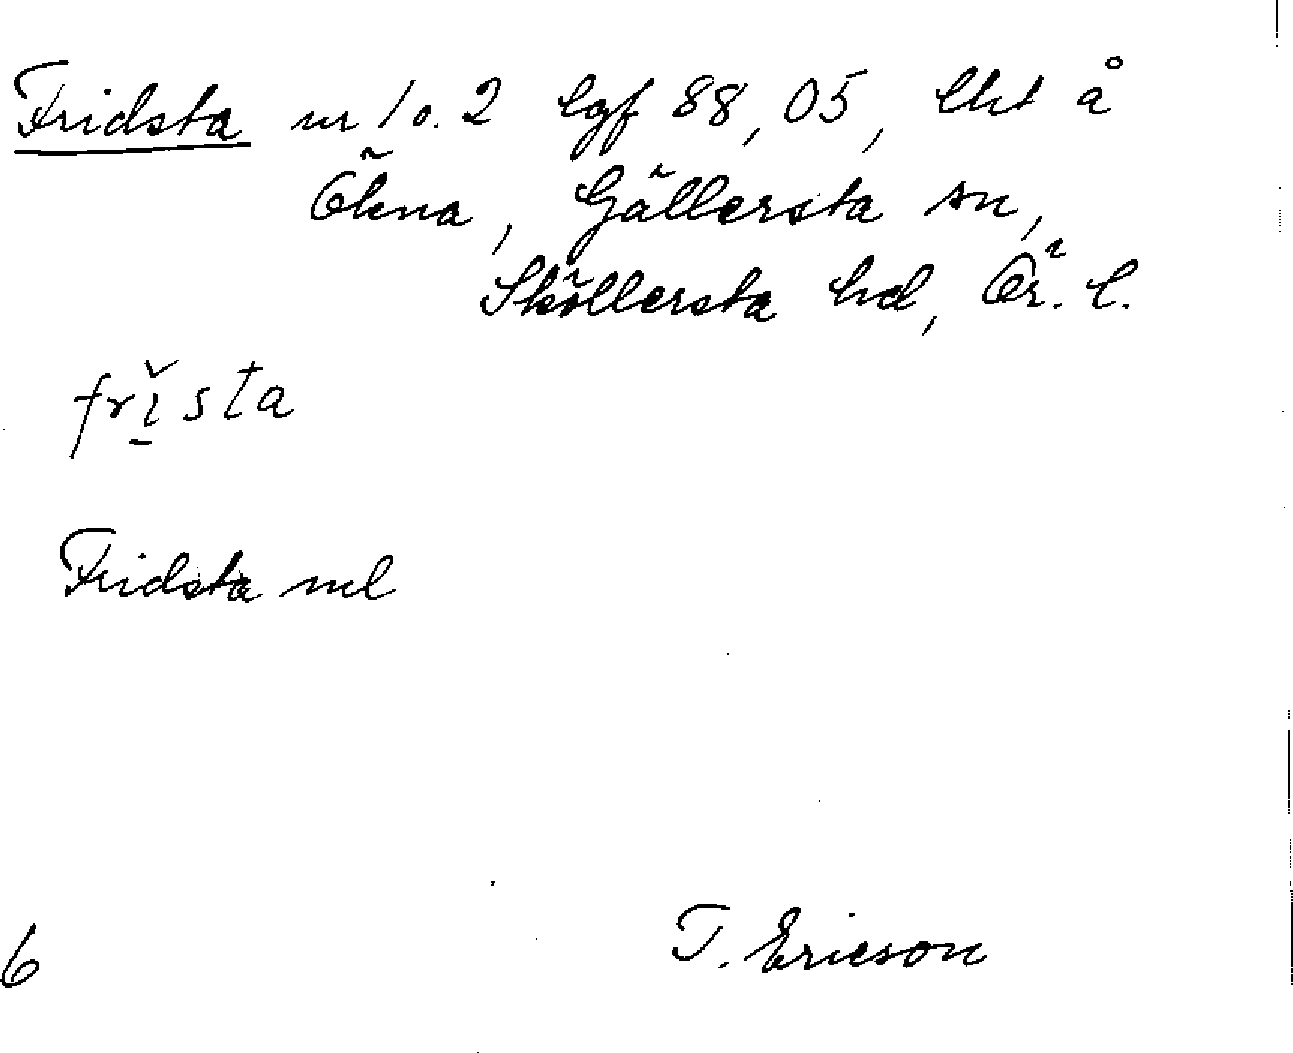 Fridsta nr 1 o. 2 lgf 88, 05, lht å
Ökna, Gällersta sn,
Sköllersta hd, Ör. l.
frĭ̱sta
Fridsta ml
6
T. Ericson